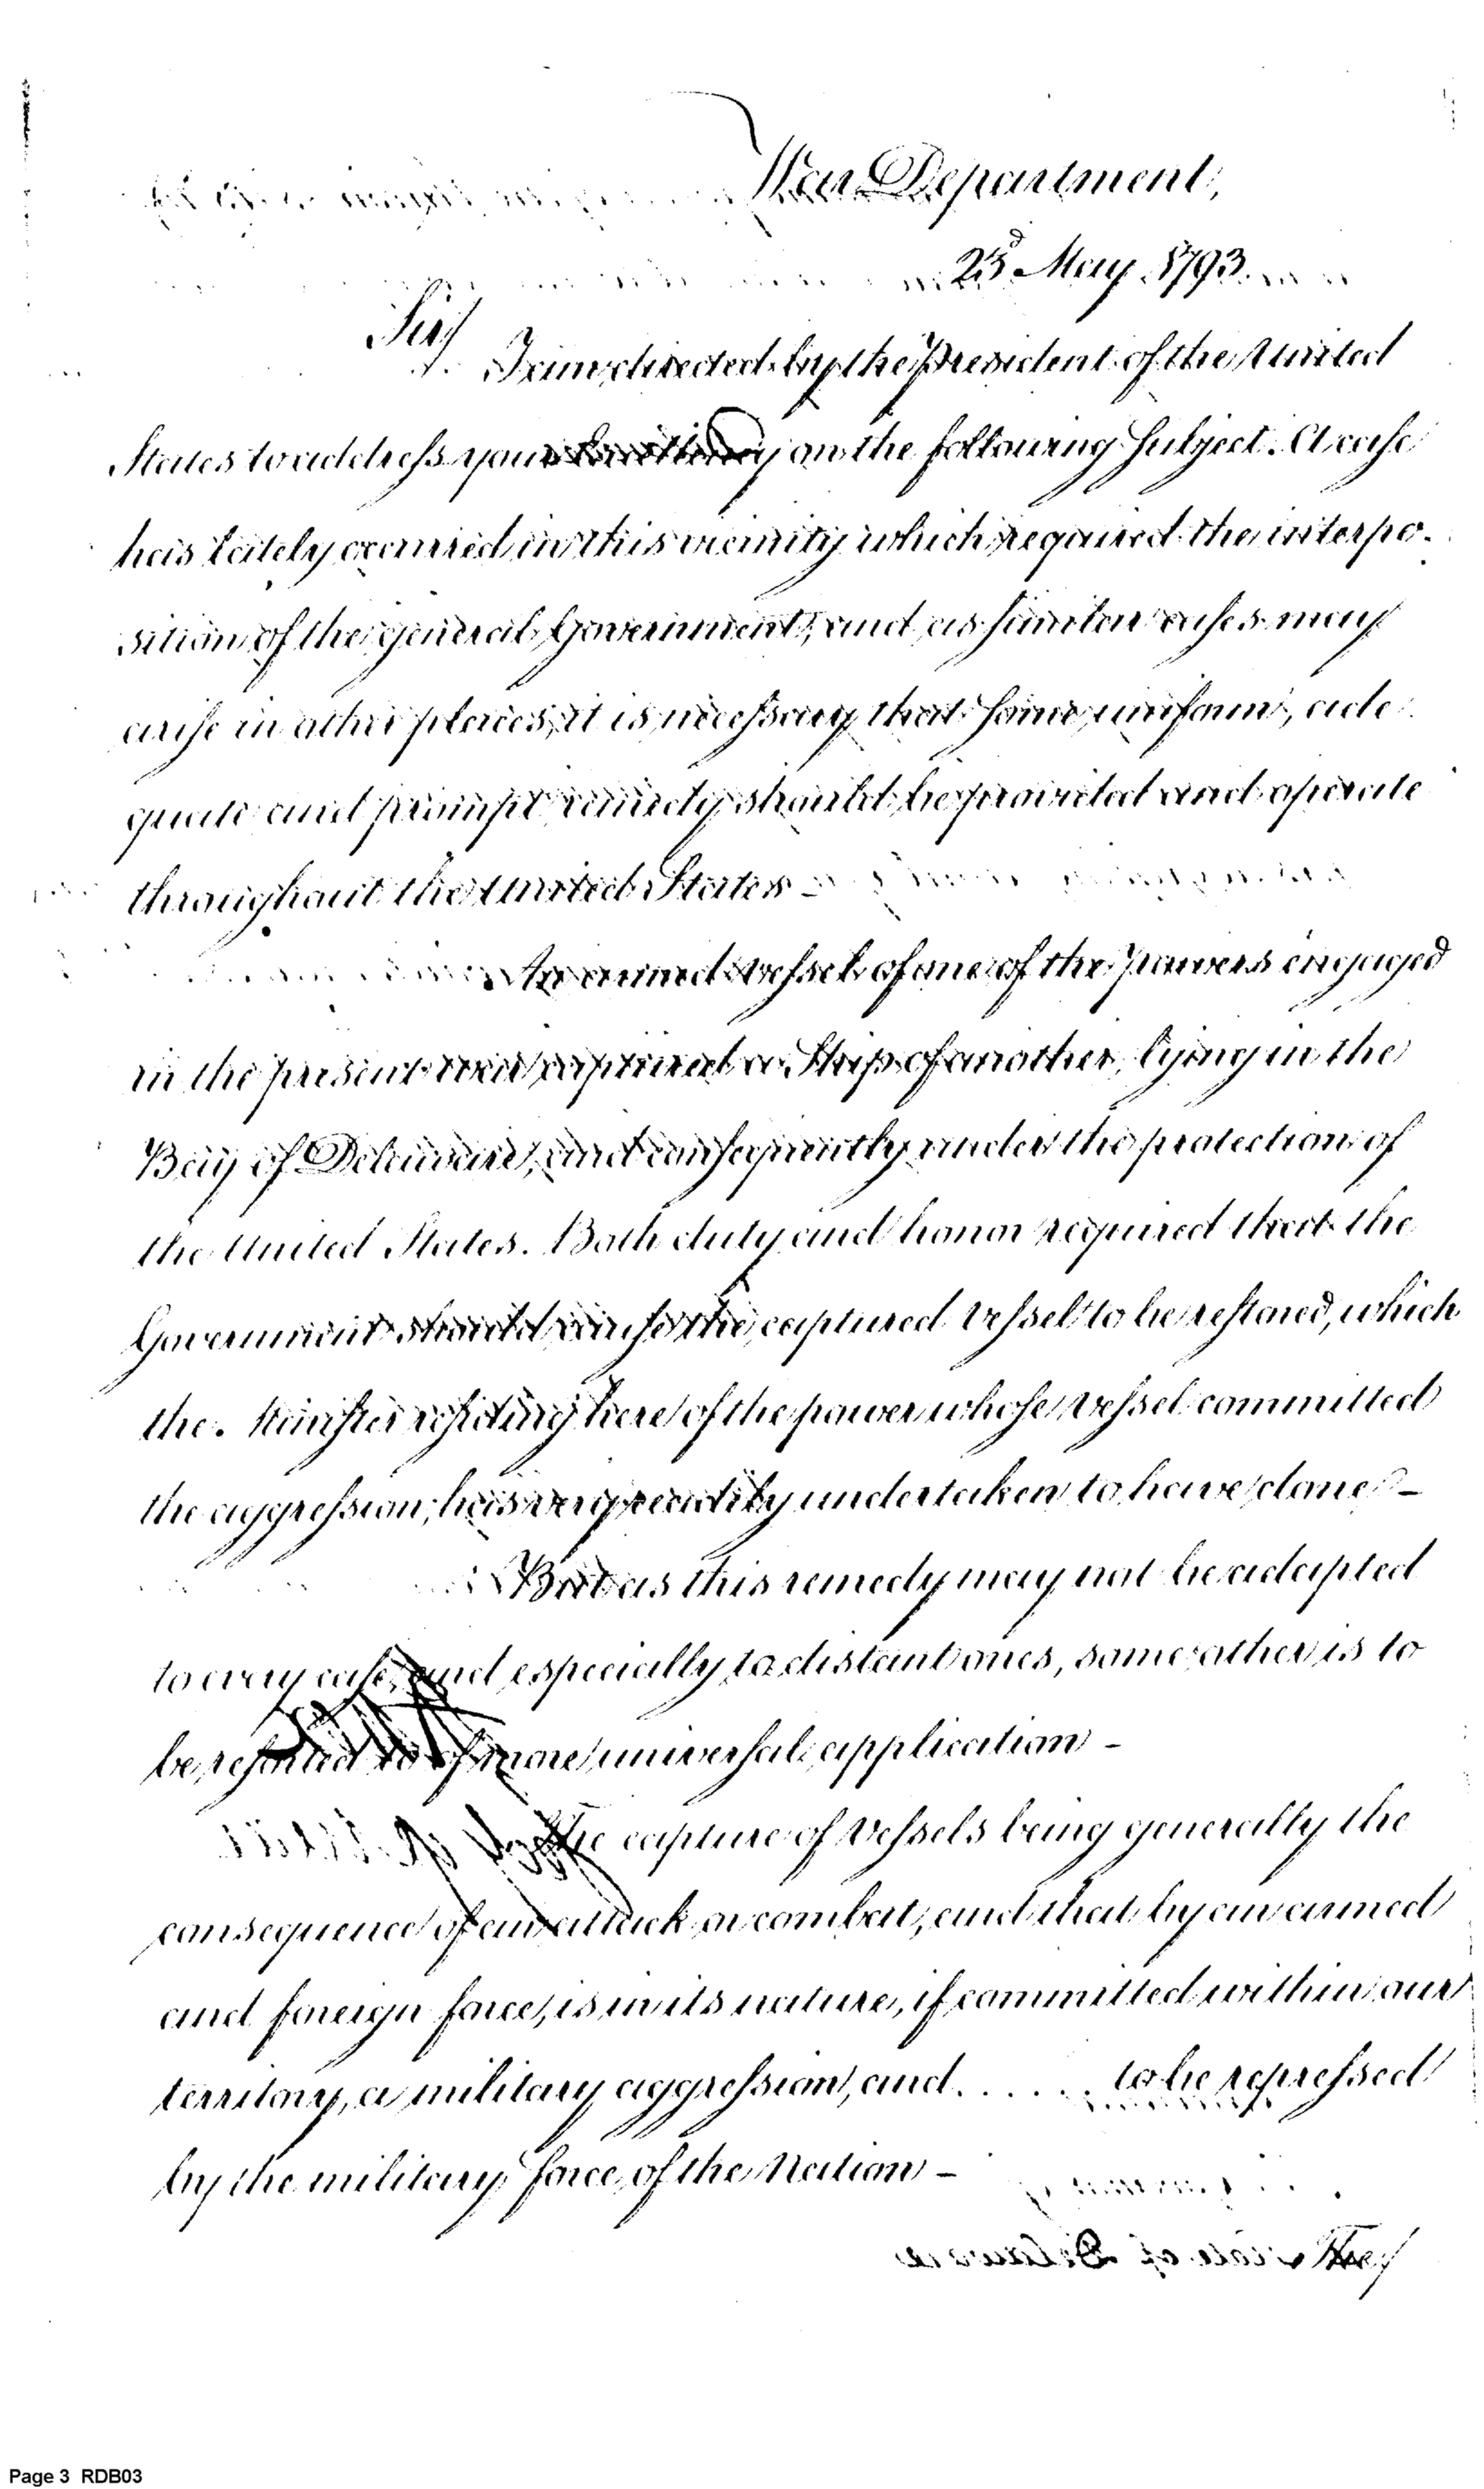 War Department,
23d May 1793.
Sir,
I am directed by the President of the United
States to address your Excellency on the following Subject. A case
has lately occurred in this vicinity which required the interpo-
sition of the general Government, and as similar cases may
arise in other places, it is necessary that some uniform, ade
quate and prompt remedy should be provided and operate
throughout the United States -
An armed vessel of one of the Powers engaged
in the present war captured a Ship of another, lying in the
Bay of Delaware, and consequently under the protection of
the United States. Both duty and honor required that the
Government should cause the captured vessel to be restored, which
the Minister residing here of the power whose vessel committed
the aggression, has very readily undertaken to have done -
But as this remedy may not be adapted
to every case, and especially to distant ones, some other is to
be resorted to of more universal application -
The capture of Vessels being generally the
consequence of an attack or combat, and that by an armed
and foreign force, is in its nature, if committed within our
territory, a military aggression, and ...... to be repressed
by the military force of the Nation -
The
State of Delaware
Page 3 RDB03